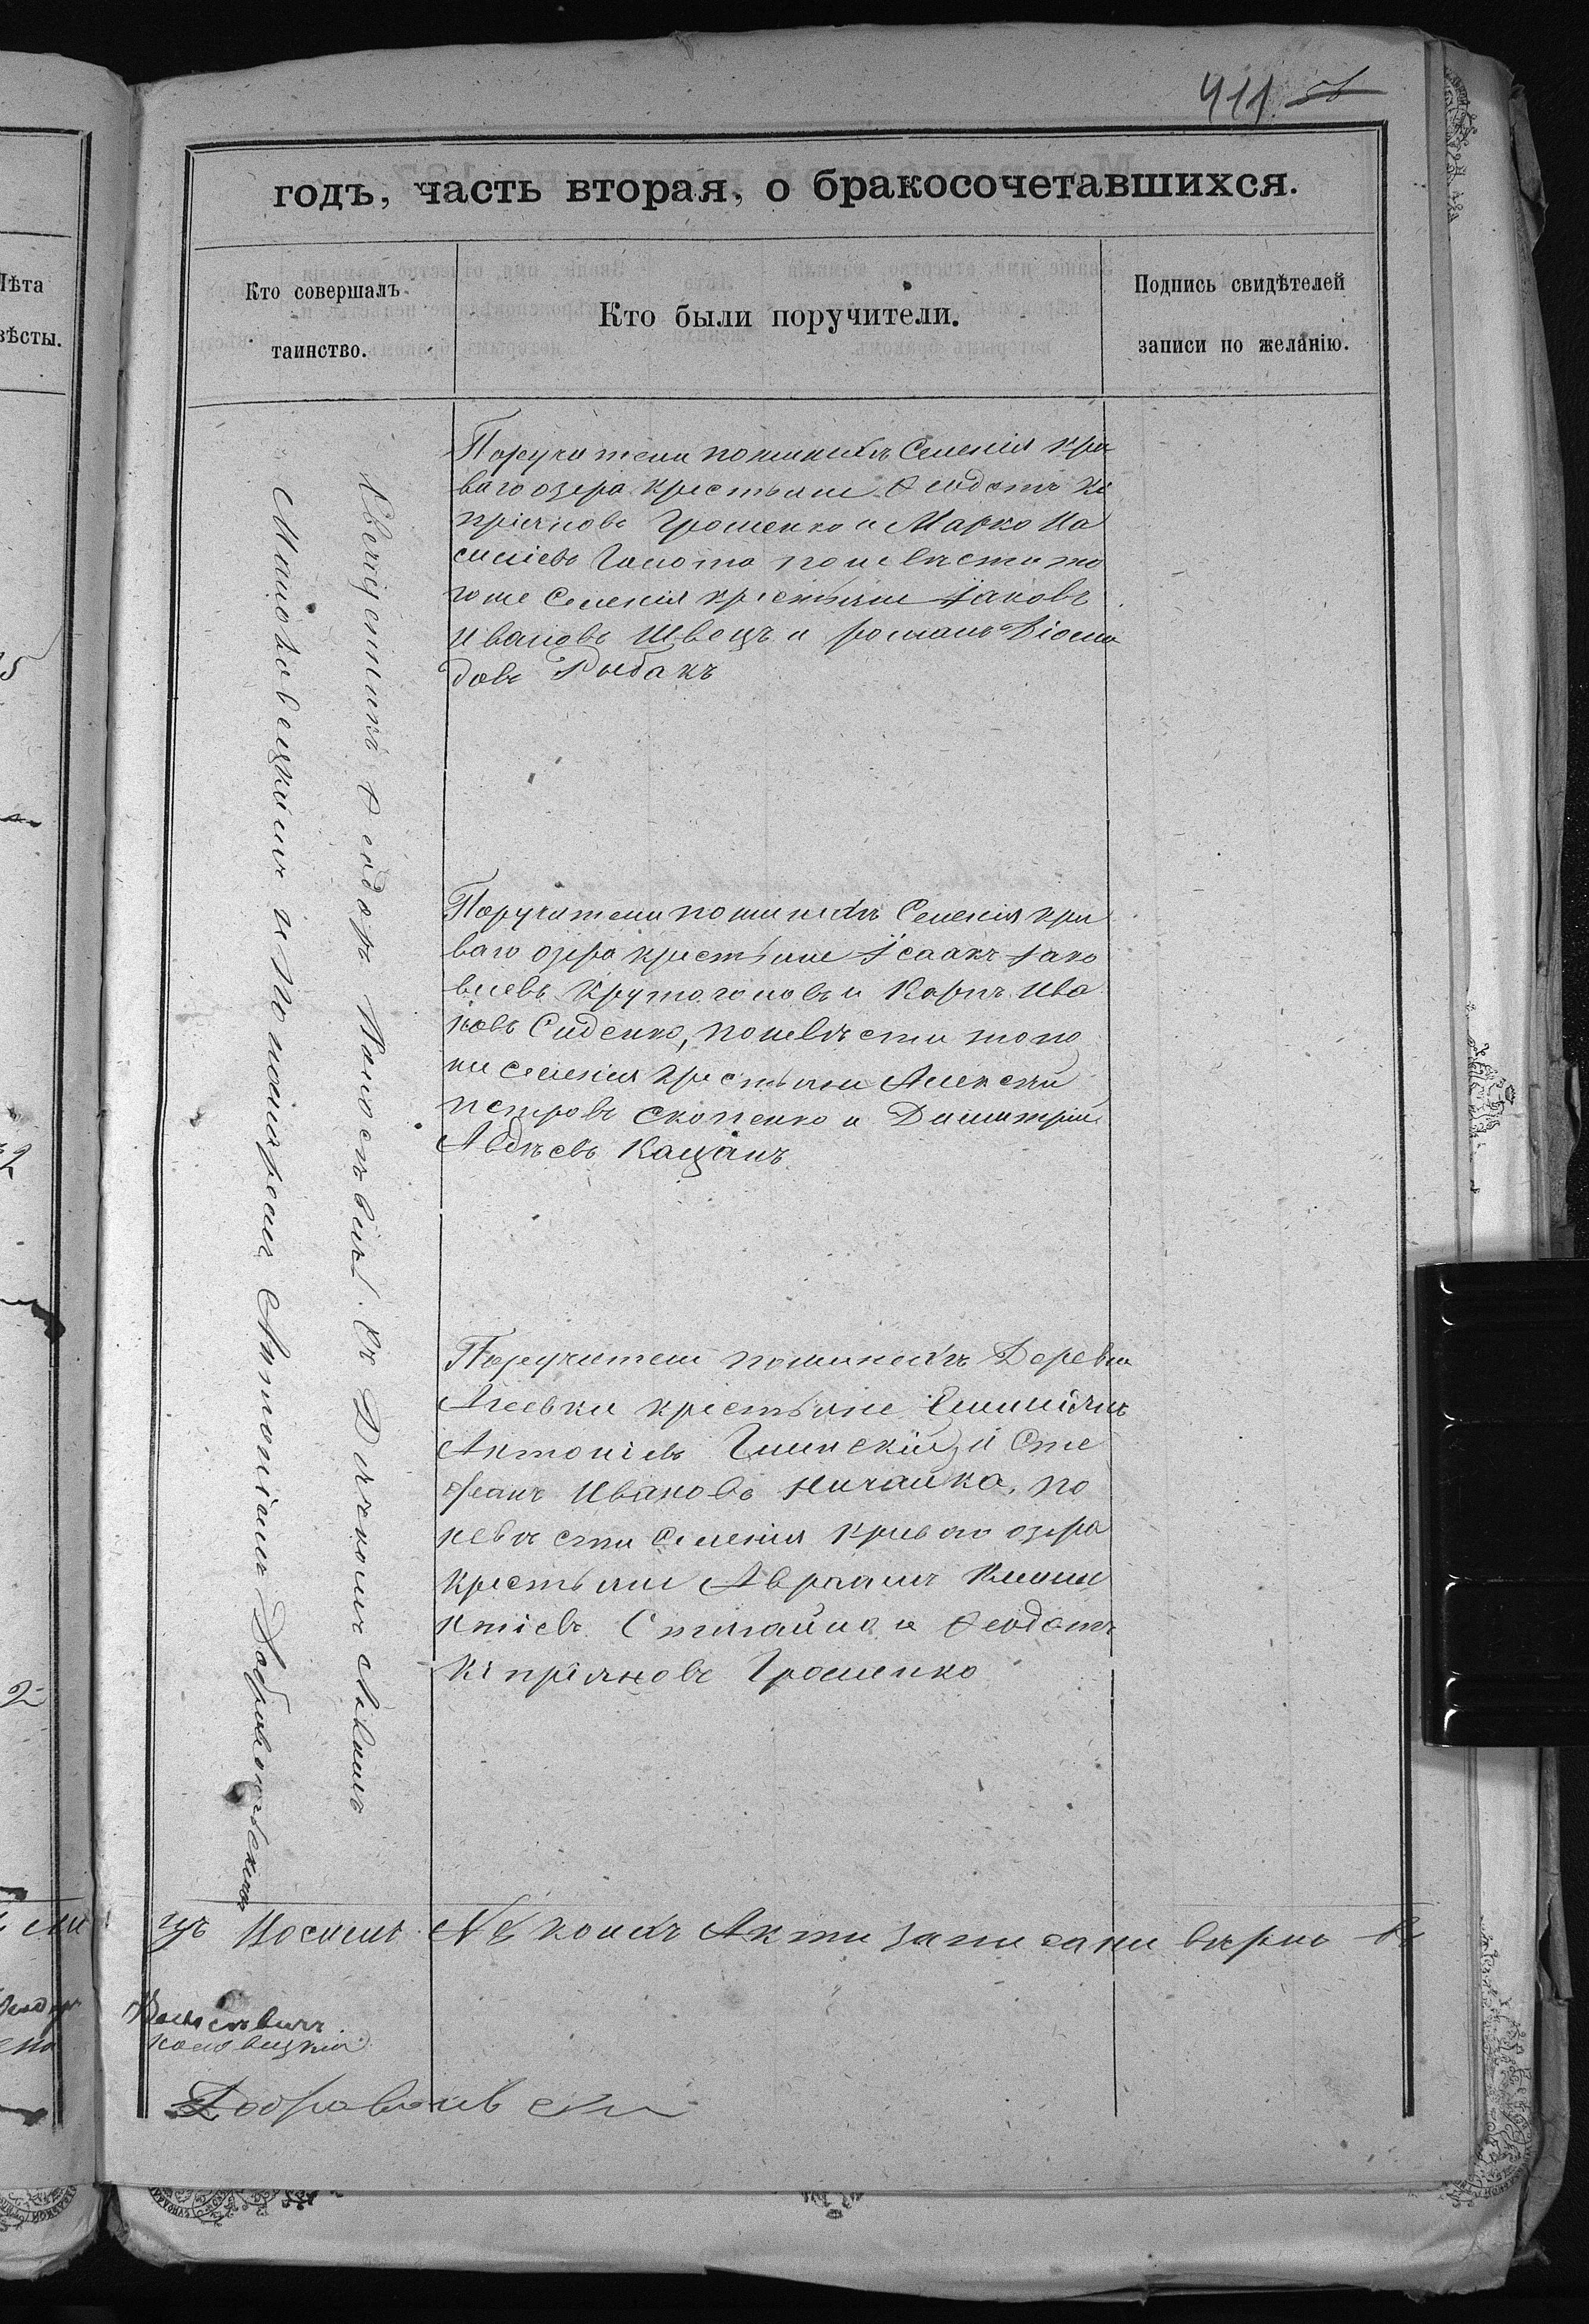 411. 58
годъ, часть вторая, о бракосочетавшихся.
Лѣта
вѣсты.
Кто совершалъ
таинство.
Кто были поручители.
Подпись свидѣтелей
записи по желанію.
Священникъ Феодоръ съ Діакономъ
и Пономаремъ Антоніемъ Добровольскимъ
Поручители по женихѣ Селенія Кри
ваго озера крестьяне Феодотъ Кі
пріановъ Грошенко и Марко Ва
силіевъ Голота по невѣсти то
гоже Селенія крестьяне Іаковъ
Ивановъ Швецъ и романъ Діоми
довъ Рыбакъ
Поручители по женихѣ Селенія кри
ваго озера крестьяне Ісаакъ Іако
влевъ Крутоголовъ и Карпъ Ива
новъ Сиденко, по невѣсти того
же селенія крестьяне Алексѣй
петровъ Скопенко и Димитрій
Авдѣевъ Кацанъ
Поручители по женихѣ Деревни
Агеевки крестьяне Емиліянъ
Антоніевъ Глинскій, и Сте
фанъ Ивановъ Ничайка, по
невѣсти Селенія Криваго озера
крестьяне Авраамъ
и Феодотъ
Кипріяновъ Грошенко
цъ Восемь № коихъ Акти записани вѣрно въ
Добровольскі